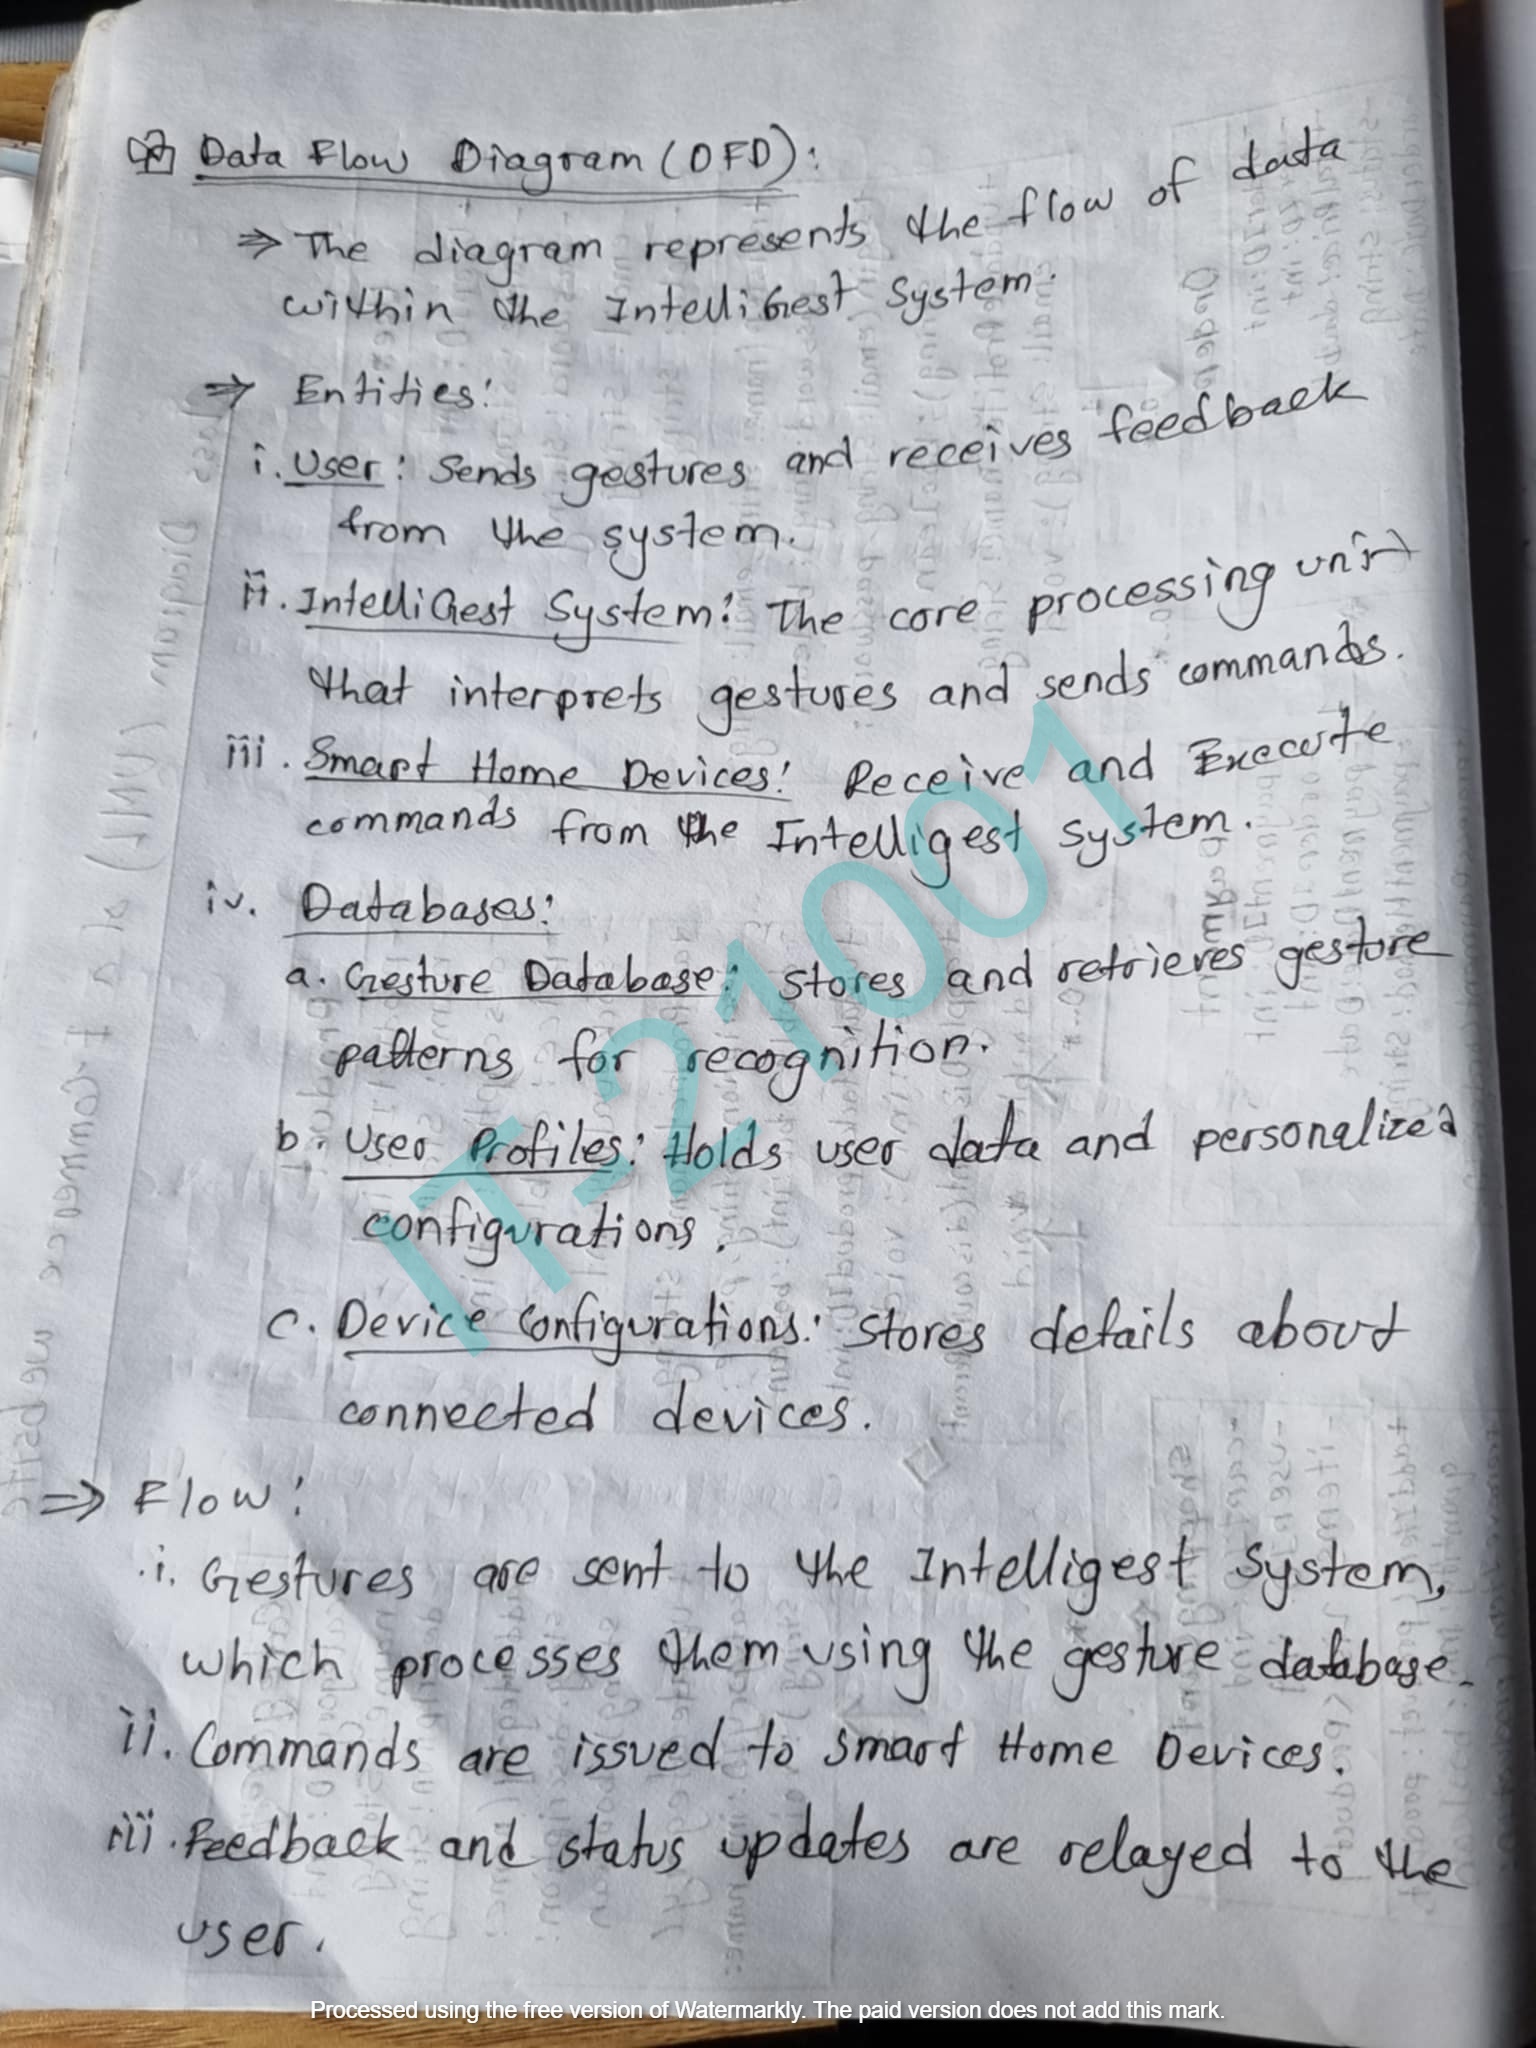 Data Flow Diagram (DFD):
⇒ The diagram represents the flow of data
within the IntelliGest System.
⇒ Entities:
i. User: Sends gestures and receives feedback
from the system.
ii. IntelliGest System: The core processing unit
that interprets gestures and sends commands.
iii. Smart Home Devices: Receive and Execute
commands from the Intelligest System.
iv. Databases:
a. Gesture Database: Stores and retrieves gesture
patterns for recognition.
b. User Profiles: Holds user data and personalized
configurations.
c. Device Configurations: Stores details about
connected devices.
⇒ Flow:
i. Gestures are sent to the Intelligest System,
which processes them using the gesture database.
ii. Commands are issued to Smart Home Devices.
iii. Feedback and status updates are relayed to the
user.
IT-21001
Processed using the free version of Watermarkly. The paid version does not add this mark.